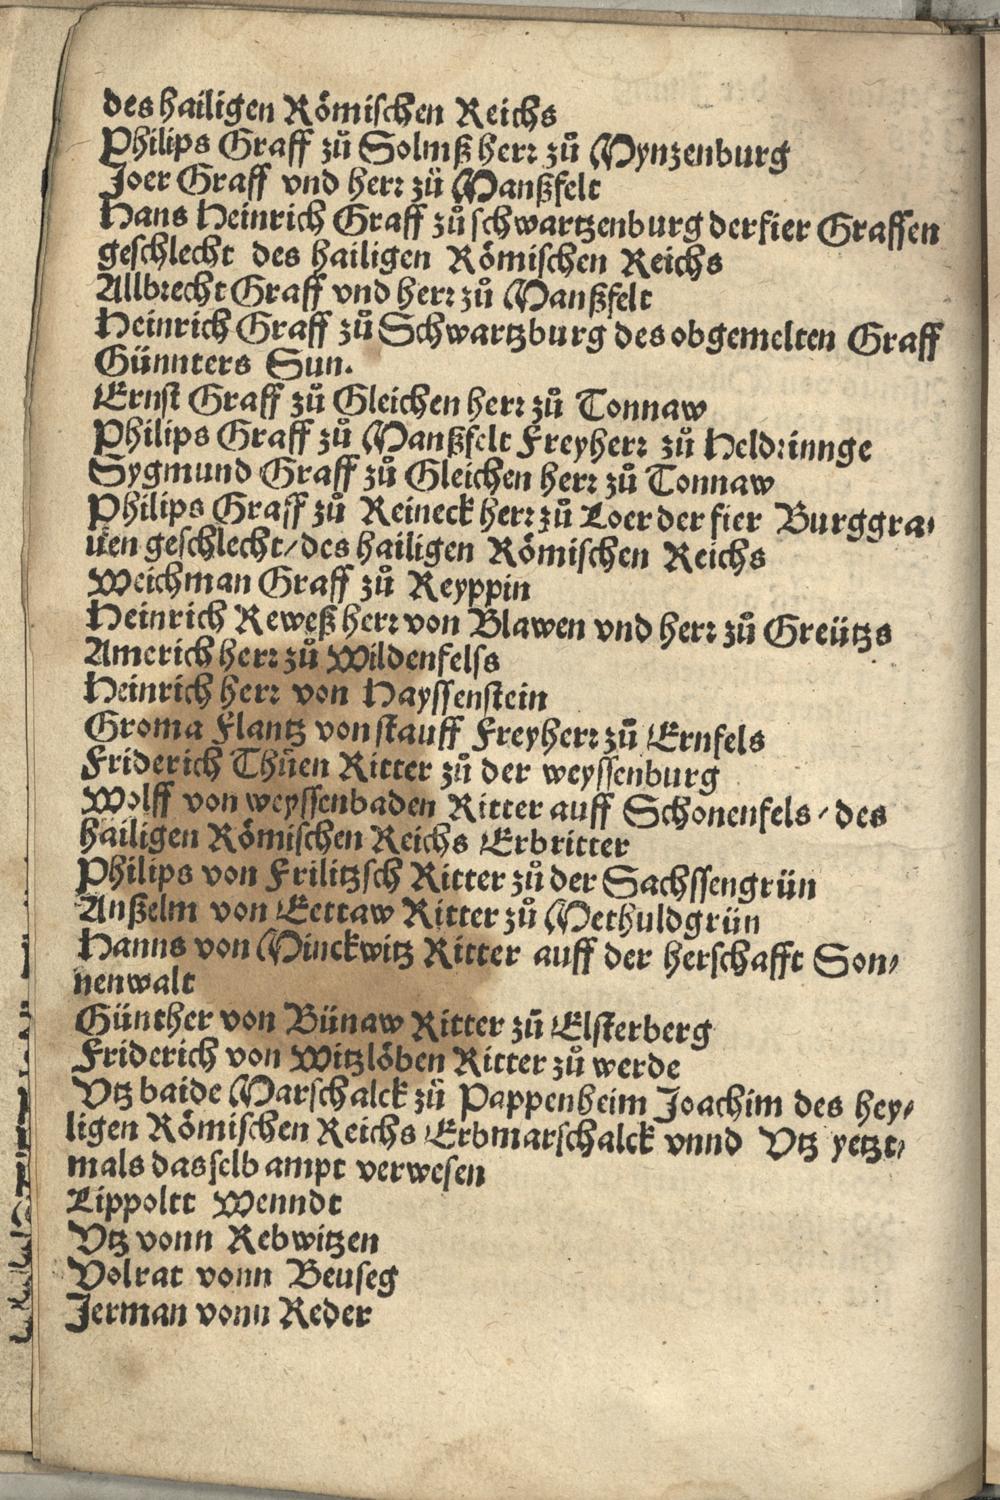 des hailigen Römischen Reichs
Philips Graff zů Solmß herr zů Mynzenburg
Joer Graff vnd herr zů Manßfelt
Hans Heinrich Graff zů schwartzenburg der fier Graffen
geschlecht des hailigen Römischen Reichs
Allbrecht Graff vnd herr zů Manßfelt
Heinrich Graff zů Schwartzburg des obgemelten Graff
Günnters Sun.
Ernst Graff zů Gleichen herr zů Tonnaw
Philips Graff zů Manßfelt Freyherr zů Heldrinnge
Sygmund Graff zů Gleichen herr zů Tonnaw
Philips Graff zů Reineck herr zů Loer der fier Burggra-
uen geschlecht/ des hailigen Römischen Reichs
Weichman Graff zů Reyppin
Heinrich Reweß herr von Blawen vnd herr zů Greütz
Americh herr zů Wildenfelss
Heinrich herr von Hayssenstein
Groma Flantz von stauff Freyherr zů Ernfels
Friderich Thůen Ritter zů der weyssenburg
Wolff von weyssenbaden Ritter auff Schonenfels / des
hailigen Römischen Reichs Erbritter
Philips von Frilitzsch Ritter zů der Sachssengrün
Anßelm von Tettaw Ritter zů Methuldgrün
Hanns von Minckwitz Ritter auff der herschafft Son-
nenwalt
Günther von Bünaw Ritter zů Elsterberg
Friderich von Witzlöben Ritter zů werde
Vtz baide Marschalck zů Pappenheim Joachim des hey-
ligen Römischen Reichs Erbmarschalck vnnd Vtz yetzt-
mals dasselb ampt verwesen
Lippoltt Wenndt
Vtz vonn Rebwitzen
Volrat vonn Beuseg
Jerman vonn Reder